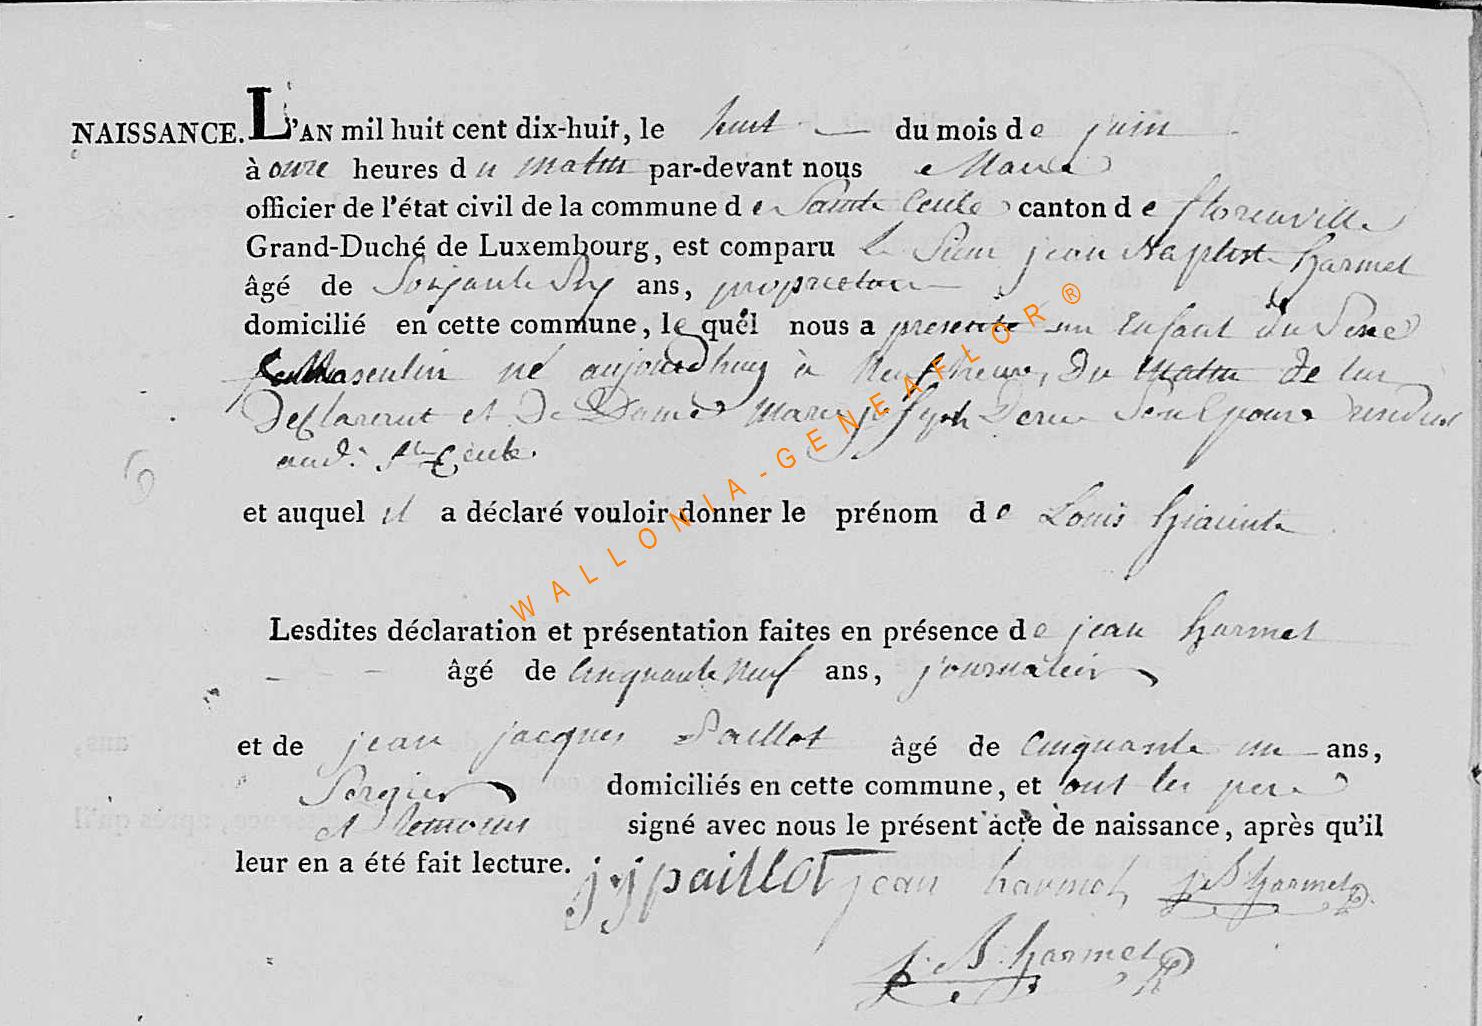 NAISSANCE. L'AN mil huit cent dix-huit, le huit du mois de juin
à onze heures du matin par-devant nous Maire
officier de l'état civil de la commune de Sainte Cecile canton de florenville
Grand-Duché de Luxembourg, est comparu le Sieur jean Baptiste harmel
âgé de Soixante Six ans, proprietaire
domicilié en cette commune, lequel nous a presenté un Enfant du Sexe
Masculin né aujourdhuy à Neuf heures du Matin de lui
Declarent et De Dame Marie joseph Seul pour residus
aud. Ste Cécile.
et auquel il a déclaré vouloir donner le prénom de Louis hiacinte
Lesdites déclaration et présentation faites en présence de jean harmel
âgé de Cinquante Neuf ans, journalier
et de jean jacques Paillot âgé de Cinquante un ans,
Bergier domiciliés en cette commune, et ont les pere
et temoins signé avec nous le présent acte de naissance, après qu'il
leur en a été fait lecture. jjpaillot jean harmel jB harmel
j. B. harmel
WALLONIA-GENEAFLOR ®